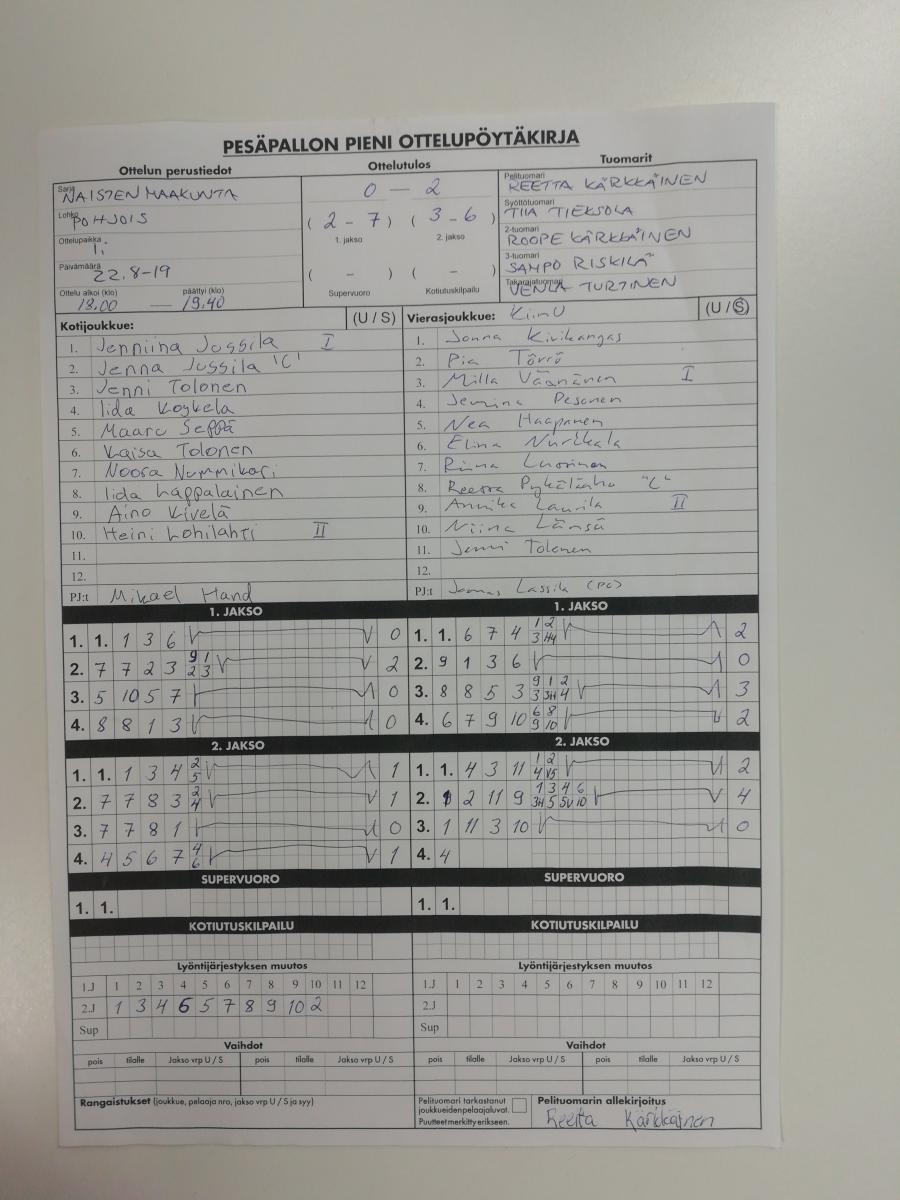 PESÄPALLON PIENI OTTELUPÖYTÄKIRJA
Ottelun perustiedot Ottelutulos Tuomarit
Sarja NAISTEN MAAKUNTA
Lohko POHJOIS
Ottelupaikka
Päivämäärä 22.8-19
Ottelu alkoi (klo) päättyi (klo)
18.00 — 19.40
0 - 2
( 2 - 7 ) ( 3 - 6 )
1. jakso 2. jakso
( - ) ( - )
Supervuoro Kotiutuskilpailu
Pelituomari REETTA KÄRKKÄINEN
Syöttötuomari TIIA TIEKSOLA
2-tuomari ROOPE KÄRKKÄINEN
3-tuomari SAMPO RISKILÄ
Takarajatuomari VENLA TURTINEN
Kotijoukkue: (U / S)
1. Jenniina Jussila I
2. Jenna Jussila "C"
3. Jenni Tolonen
4. Iida Koykela
5. Maaru Seppä
6. Kaisa Tolonen
7. Noora Nummikari
8. Iida Lappalainen
9. Aino Kivelä
10. Heini Lohilahti II
11.
12.
PJ:t Mikael Hand
Vierasjoukkue: KiinU (U / S)
1. Jonna Kivikangas
2. Pia Törrö
3. Milla Väänänen I
4. Jemina Pesonen
5. Nea Haapanen
6. Elina Nurkkala
7. Riina Luorinen
8. Reetta Pykäläaho "C"
9. Annika Laurila II
10. Niina Länsä
11. Jenni Tolonen
12.
PJ:t Joonas Lassila (PC)
1. JAKSO
1. 1. 1 3 6 0
2. 7 7 2 3 9 1 2 3 2
3. 5 10 5 7 0
4. 8 8 1 3 0
1. JAKSO
1. 1. 6 7 4 1 2 3 H4 2
2. 9 1 3 6 0
3. 8 8 5 3 9 1 2 3 3H 4 3
4. 6 7 9 10 6 8 9 10 2
2. JAKSO
1. 1. 1 3 4 2 5 1
2. 7 7 8 3 2 4 1
3. 7 7 8 1 0
4. 4 5 6 7 4 6 1
2. JAKSO
1. 1. 4 3 11 1 2 4 V5 2
2. 1 2 11 9 1 3 4 6 3H 5 5V 10 4
3. 1 11 3 10 0
4. 4
SUPERVUORO SUPERVUORO
1. 1. 1. 1.
KOTIUTUSKILPAILU KOTIUTUSKILPAILU
Lyöntijärjestyksen muutos Lyöntijärjestyksen muutos
1.J 1 2 3 4 5 6 7 8 9 10 11 12 1.J 1 2 3 4 5 6 7 8 9 10 11 12
2.J 1 3 4 6 5 7 8 9 10 2 2.J
Sup Sup
Vaihdot Vaihdot
pois tilalle Jakso vrp U / S pois tilalle Jakso vrp U / S pois tilalle Jakso vrp U / S pois tilalle Jakso vrp U / S
Rangaistukset (joukkue, pelaaja nro, jakso vrp U / S ja syy)
Pelituomari tarkastanut
joukkueiden pelaajaluvat.
Puutteet merkitty erikseen.
Pelituomarin allekirjoitus
Reetta Kärkkäinen